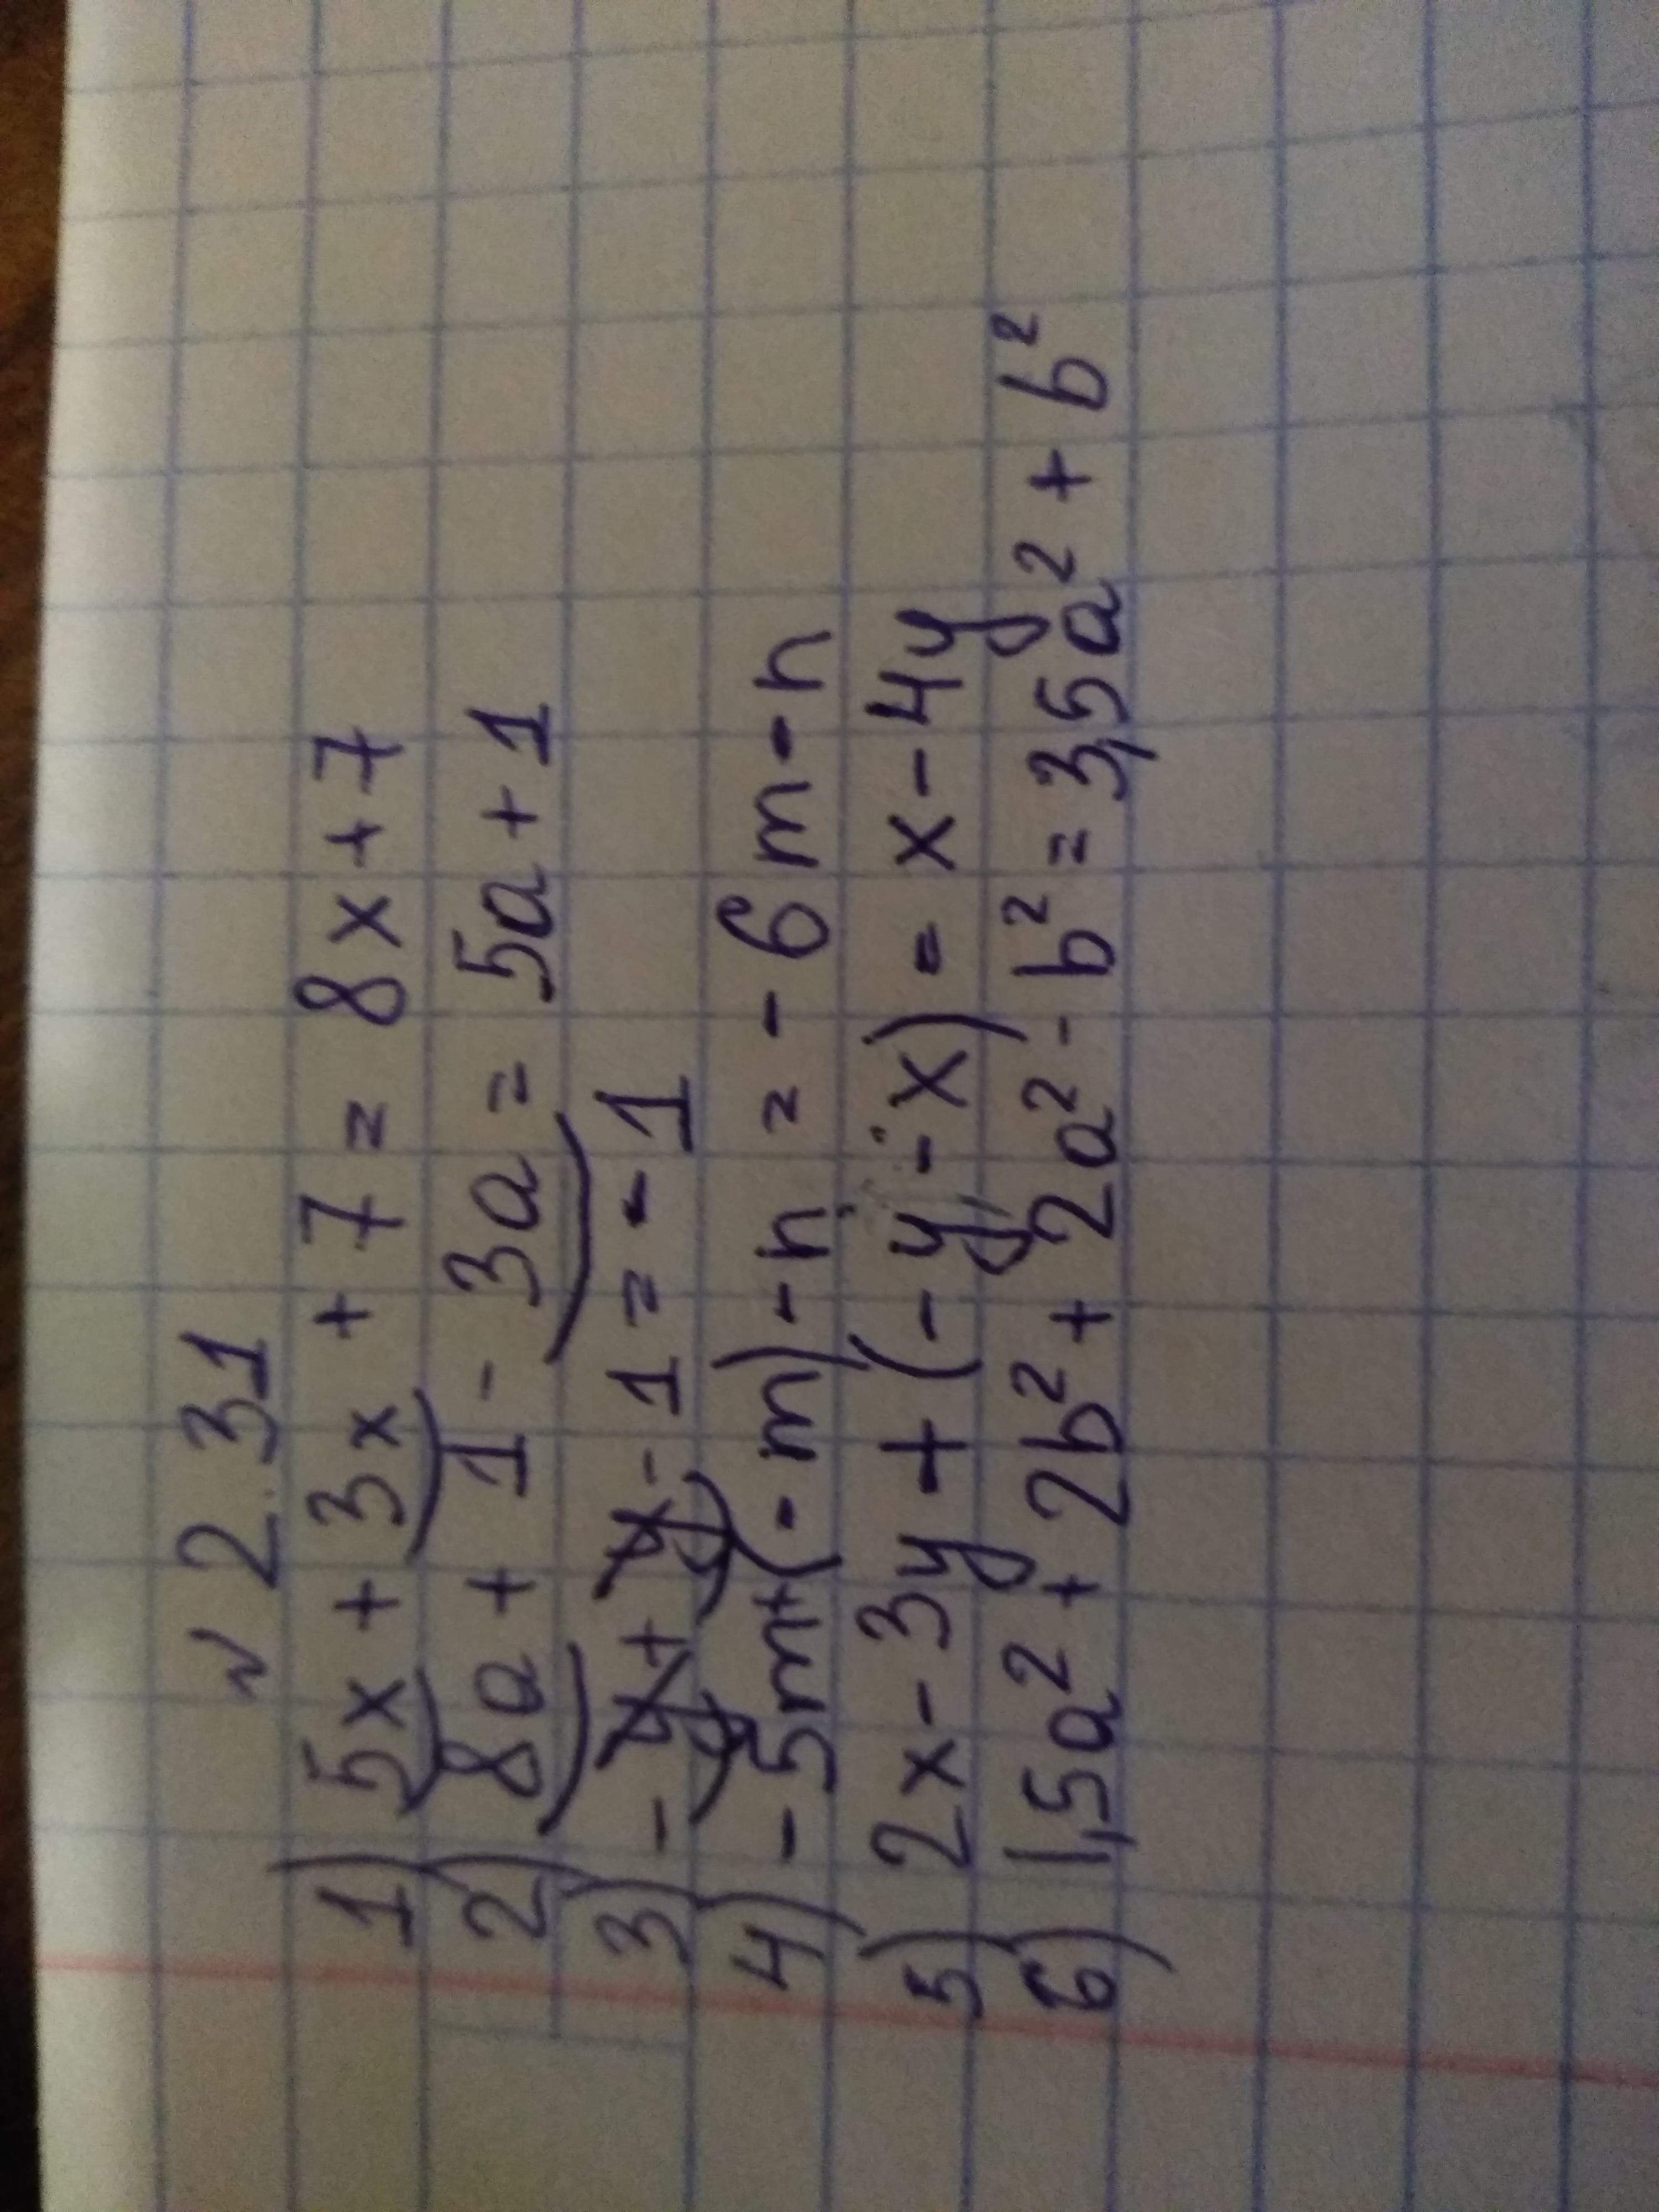 № 2.31
1) 5x + 3x + 7 = 8x + 7
2) 8a + 1 - 3a = 5a + 1
3) - y + y - 1 = - 1
4) - 5m + (- m) - n = - 6m - n
5) 2x - 3y + (- y - x) = x - 4y
6) 1,5a² + 2b² + 2a² - b² = 3,5a² + b²